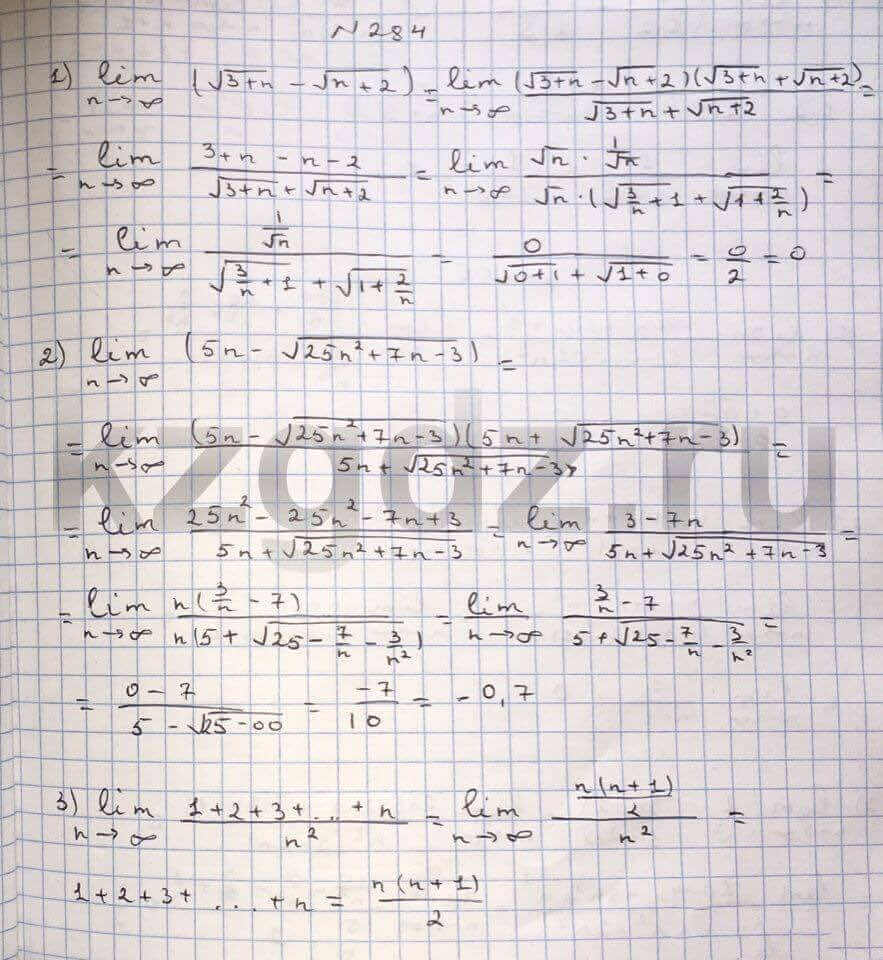 N 284
1) lim n→∞ (√(3+n) − √(n+2)) = lim n→∞ ((√(3+n) − √(n+2))(√(3+n) + √(n+2)))/(√(3+n) + √(n+2)) =
= lim n→∞ (3+n − n − 2)/(√(3+n) + √(n+2)) = lim n→∞ (√n · 1/√n)/(√n · (√(3/n + 1) + √(1 + 2/n))) =
= lim n→∞ (1/√n)/(√(3/n + 1) + √(1 + 2/n)) = 0/(√(0+1) + √(1+0)) = 0/2 = 0
2) lim n→∞ (5n − √(25n²+7n−3)) =
= lim n→∞ ((5n − √(25n²+7n−3))(5n + √(25n²+7n−3)))/(5n + √(25n²+7n−3)) =
= lim n→∞ (25n² − 25n² − 7n+3)/(5n + √(25n²+7n−3)) = lim n→∞ (3−7n)/(5n + √(25n²+7n−3)) =
= lim n→∞ (n(3/n − 7))/(n(5 + √(25 − 7/n − 3/n²))) = lim n→∞ (3/n − 7)/(5 + √(25 − 7/n − 3/n²)) =
= (0 − 7)/(5 − √(25−00)) = −7/10 = −0,7
3) lim n→∞ (1+2+3+...+n)/n² = lim n→∞ (n(n+1)/2)/n² =
1+2+3+ ... +n = n(n+1)/2
kzgdz.ru